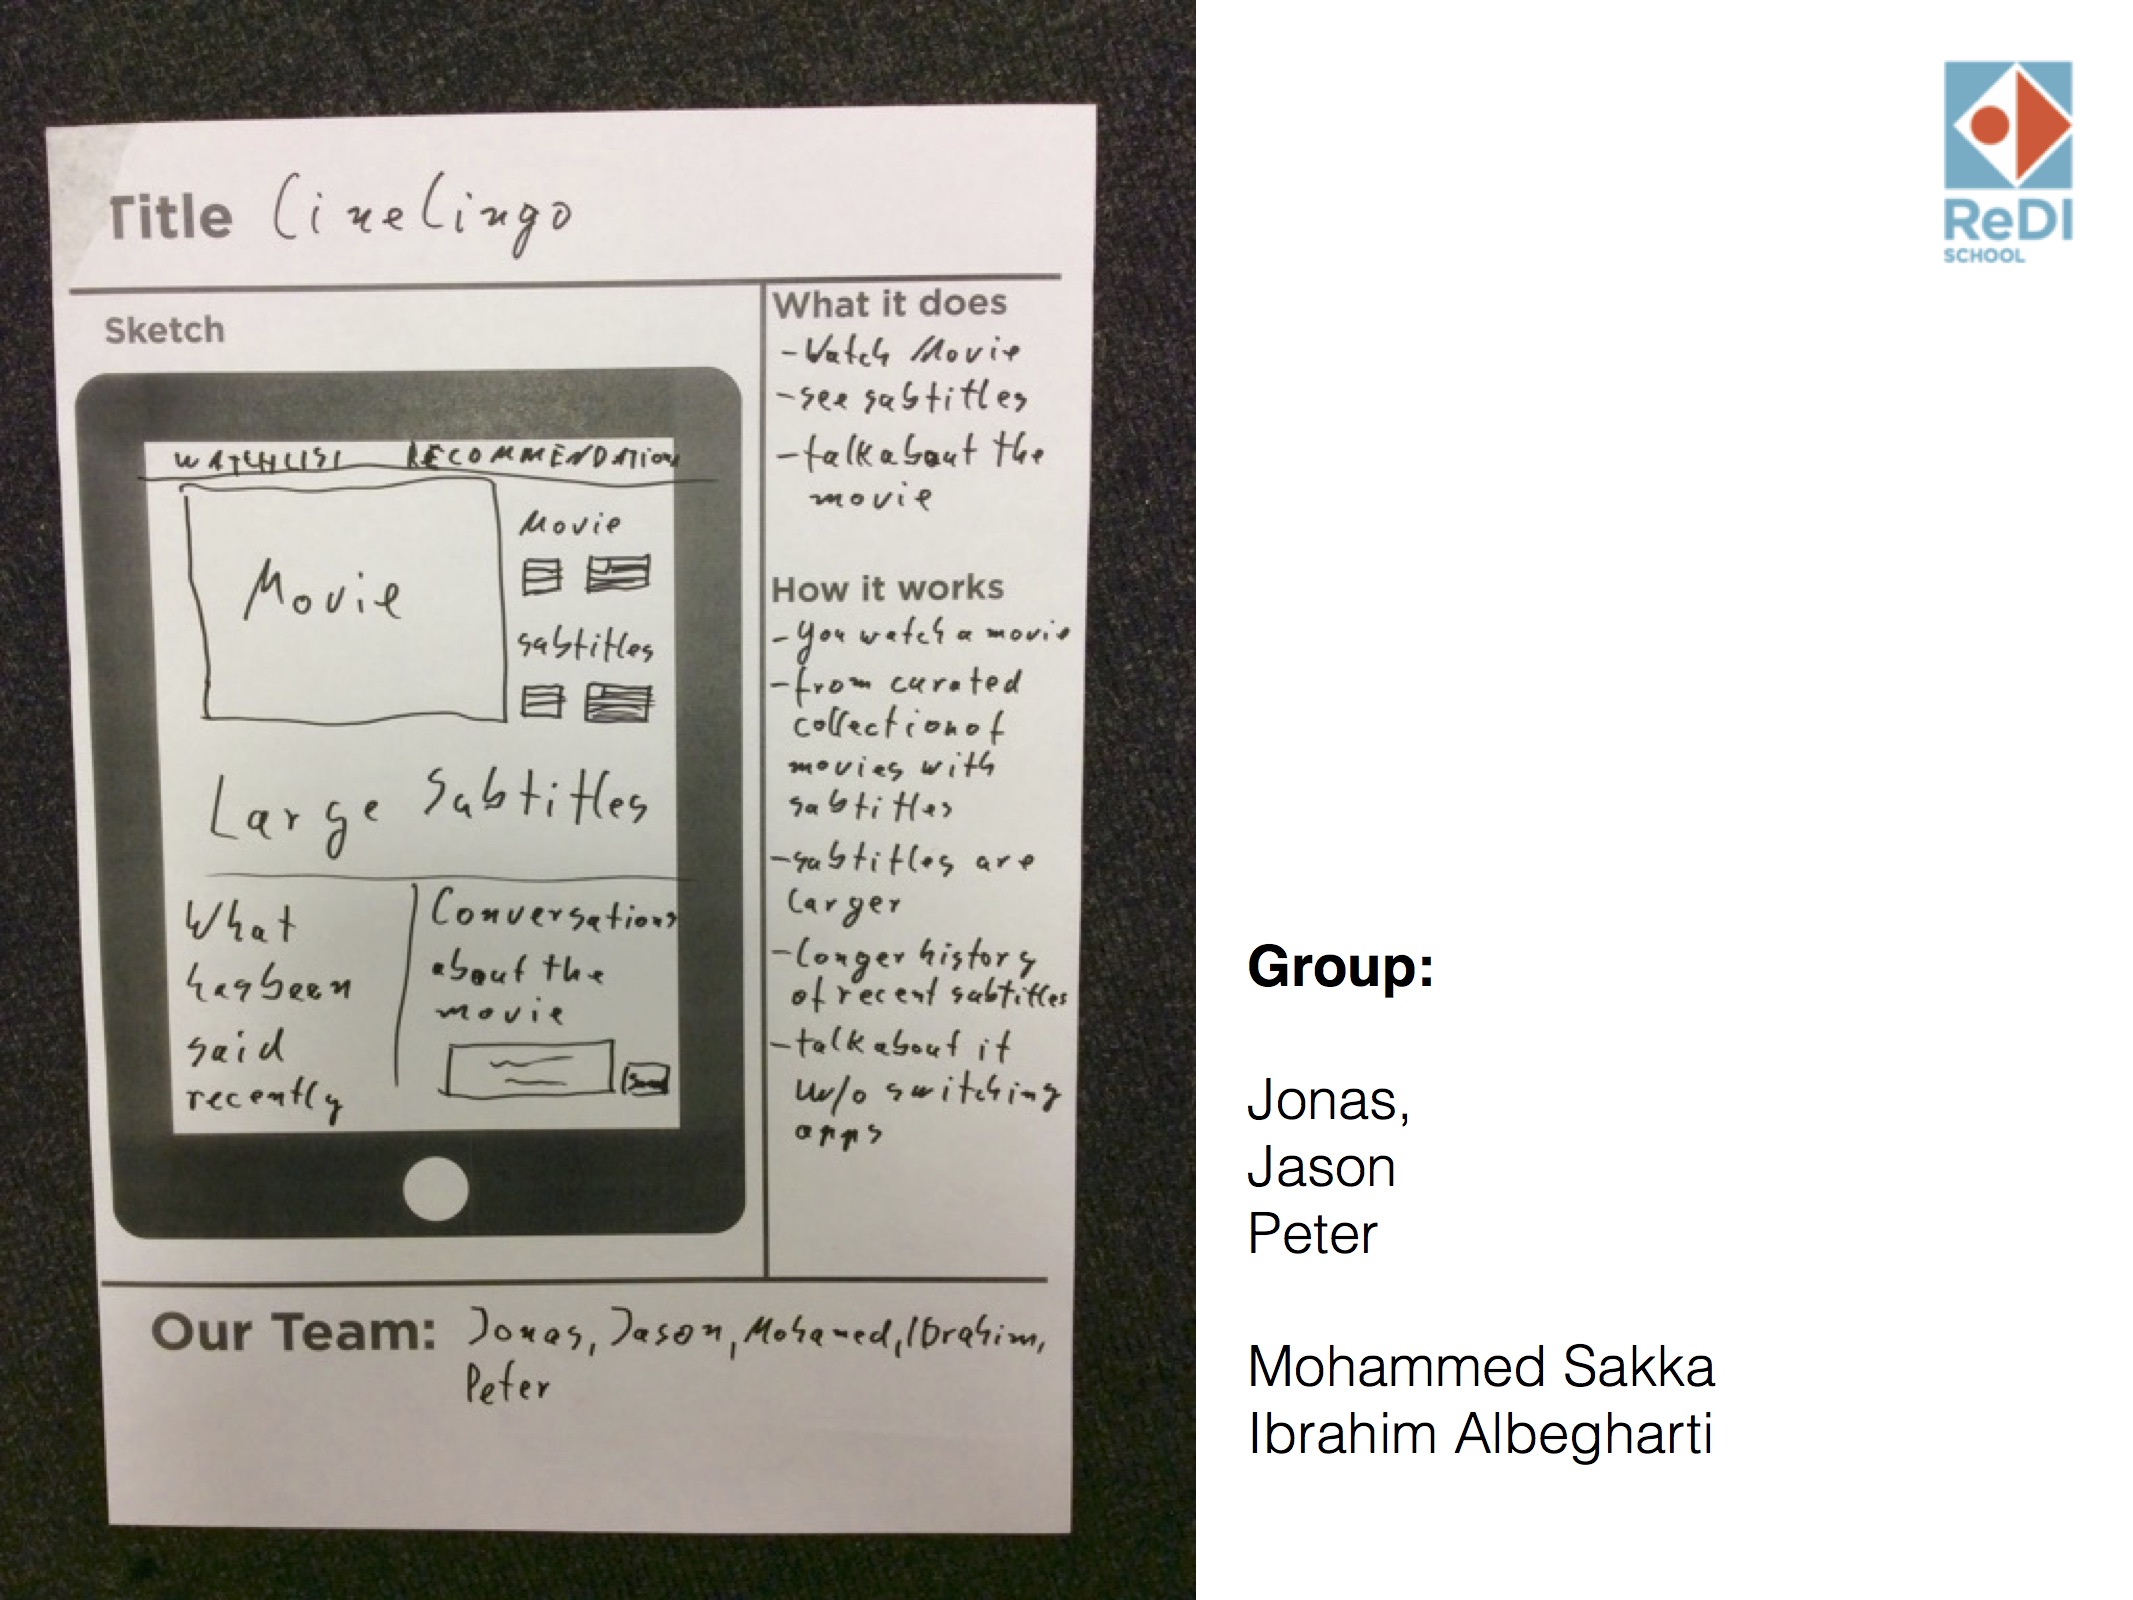 Title CineLingo
Sketch
WATCHLIST RECOMMENDATION
Movie
Movie
subtitles
Large Subtitles
What
has been
said
recently
Conversations
about the
movie
Send
What it does
- Watch Movie
- see subtitles
- talk about the
movie
How it works
- you watch a movie
- from curated
collection of
movies with
subtitles
- subtitles are
larger
- longer history
of recent subtitles
- talk about it
w/o switching
apps
Our Team: Jonas, Jason, Mohamed, Ibrahim,
Peter
ReDI
SCHOOL
Group:
Jonas,
Jason
Peter
Mohammed Sakka
Ibrahim Albegharti